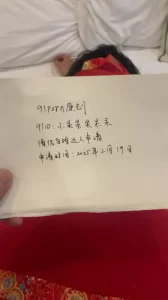 91Porn原创
91ID:小呆呆呆呆呆
情侣自拍达人申请
申请时间:2025年2月19日